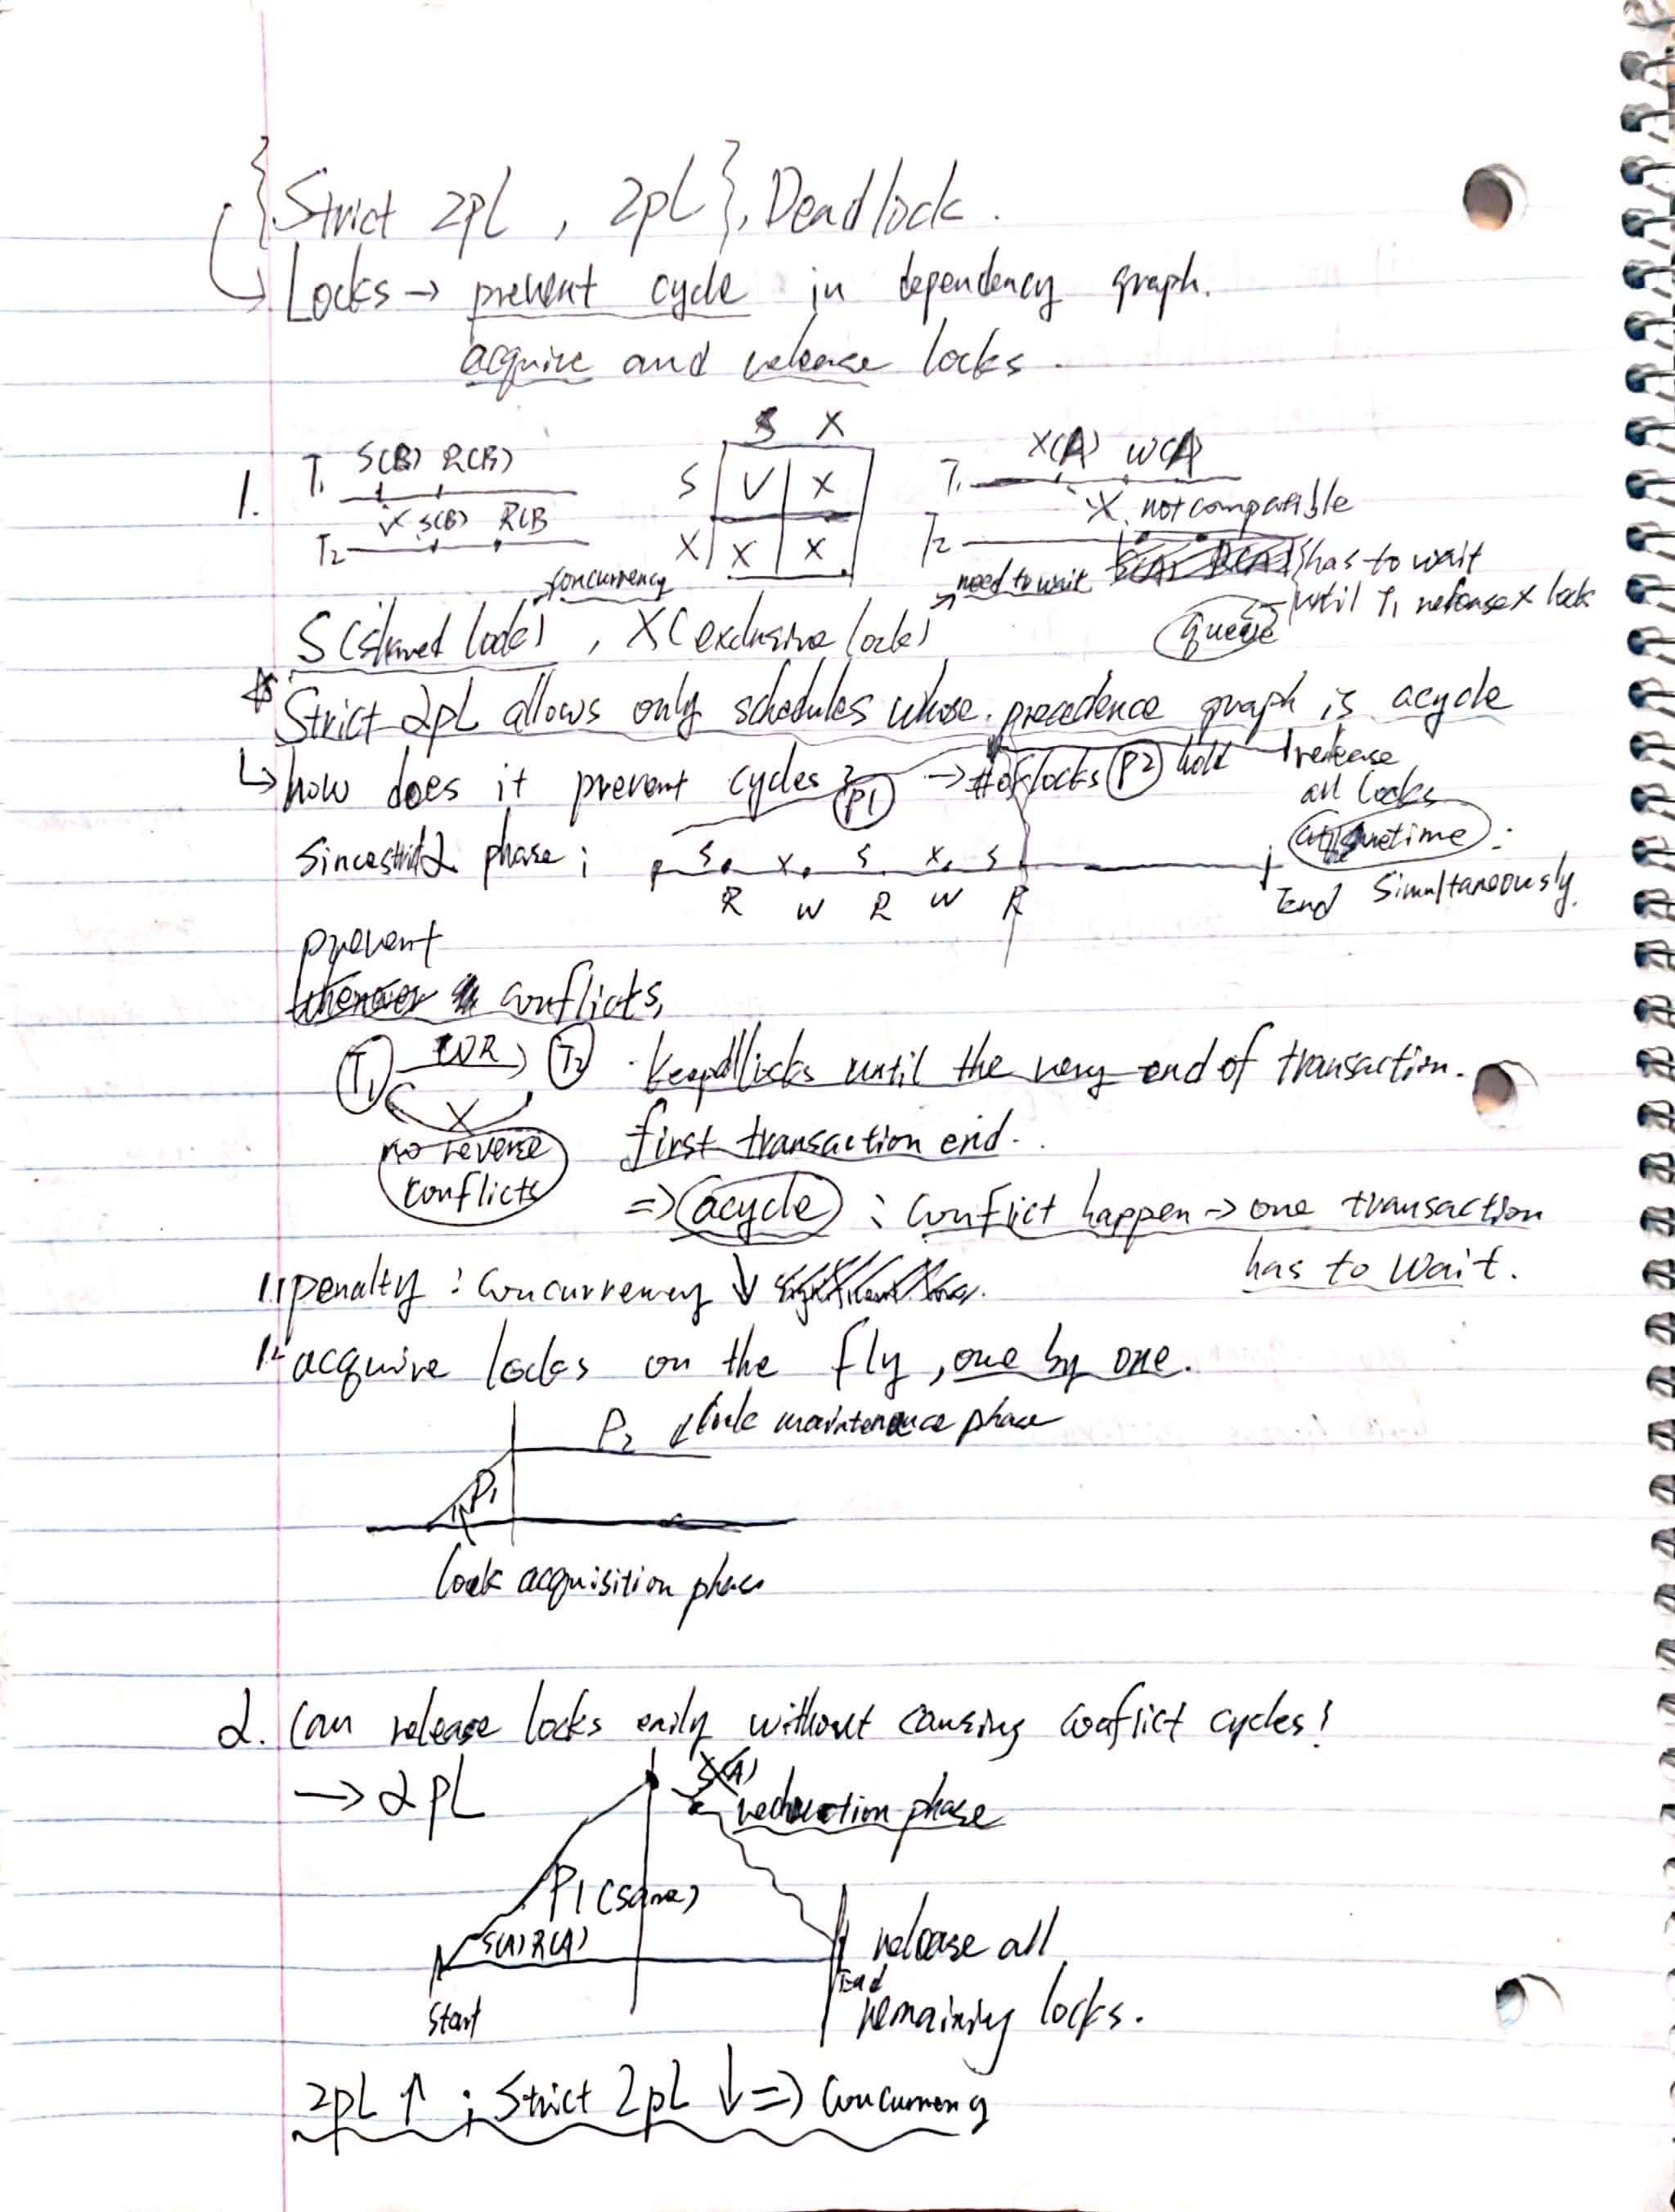 {Strict 2PL , 2PL}, Deadlock.
Locks → prevent cycle in dependency graph.
acquire and release locks.
S X
1. T1 S(B) R(B)
S V X
T1 X(A) W(A)
V S(B) R(B
X. not compatible
T2
X X X
T2
has to wait
until T1 release X lock
concurrency
need to wait
queue
S (shared lock) , X (exclusive lock)
Strict 2PL allows only schedules whose precedence graph is acycle
↳ how does it prevent cycles? P1 → # of locks P2 hold
release
all locks
at
time :
Simultaneously.
Since strict 2 phase ; S X S X S
R W R W R
End
prevent
conflicts,
T1 WR T2 . keep all locks until the very end of transaction.
X
no reverse
conflicts
first transaction end.
⇒ acycle : conflict happen → one transaction
has to wait.
1.1 penalty : concurrency ↓
1.2 acquire locks on the fly, one by one.
P2 lock maintenance phase
P1
lock acquisition phase
2. Can release locks early without causing conflict cycles!
→ 2PL
S(A)
reduction phase
P1 (same)
S(A) R(A)
Start
End
release all
remaining locks.
2PL ↑ ; Strict 2PL ↓ ⇒ Concurrency